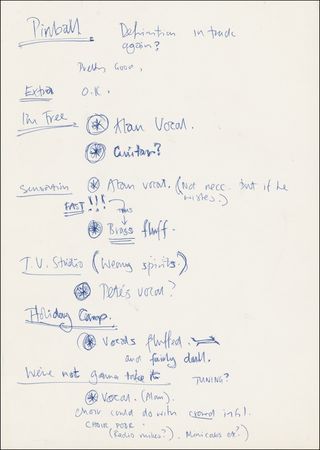 Pinball. Definition in track
again?
Pretty Good.
Extra O.K.
I'm Free * Alan Vocal.
* Guitars?
Sensation * Alan vocal. (Not necc. but if he
wishes.)
FAST!!!
THIS
* Brass fluff.
T.V. Studio (Wrong spirits.)
* Pete's vocal?
Holiday Camp.
* Vocals fluffed.
and fairly dull.
We're not gonna take it TUNING?
* Vocal. (Alan).
Choir could do with
CHOIR POOR.
(Radio mikes?)